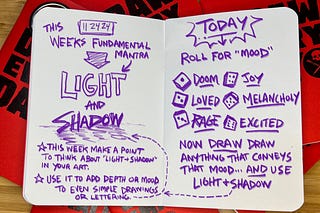 THIS 11/24/24
WEEKS FUNDAMENTAL
MANTRA
LIGHT
AND
SHADOW
THIS WEEK MAKE A POINT
TO THINK ABOUT "LIGHT+SHADOW"
IN YOUR ART.
USE IT TO ADD DEPTH OR MOOD
TO EVEN SIMPLE DRAWINGS
OR LETTERING.
TODAY
ROLL FOR "MOOD"
DOOM JOY
LOVED MELANCHOLY
RAGE EXCITED
NOW DRAW DRAW
ANYTHING THAT CONVEYS
THAT MOOD... AND USE
LIGHT+SHADOW